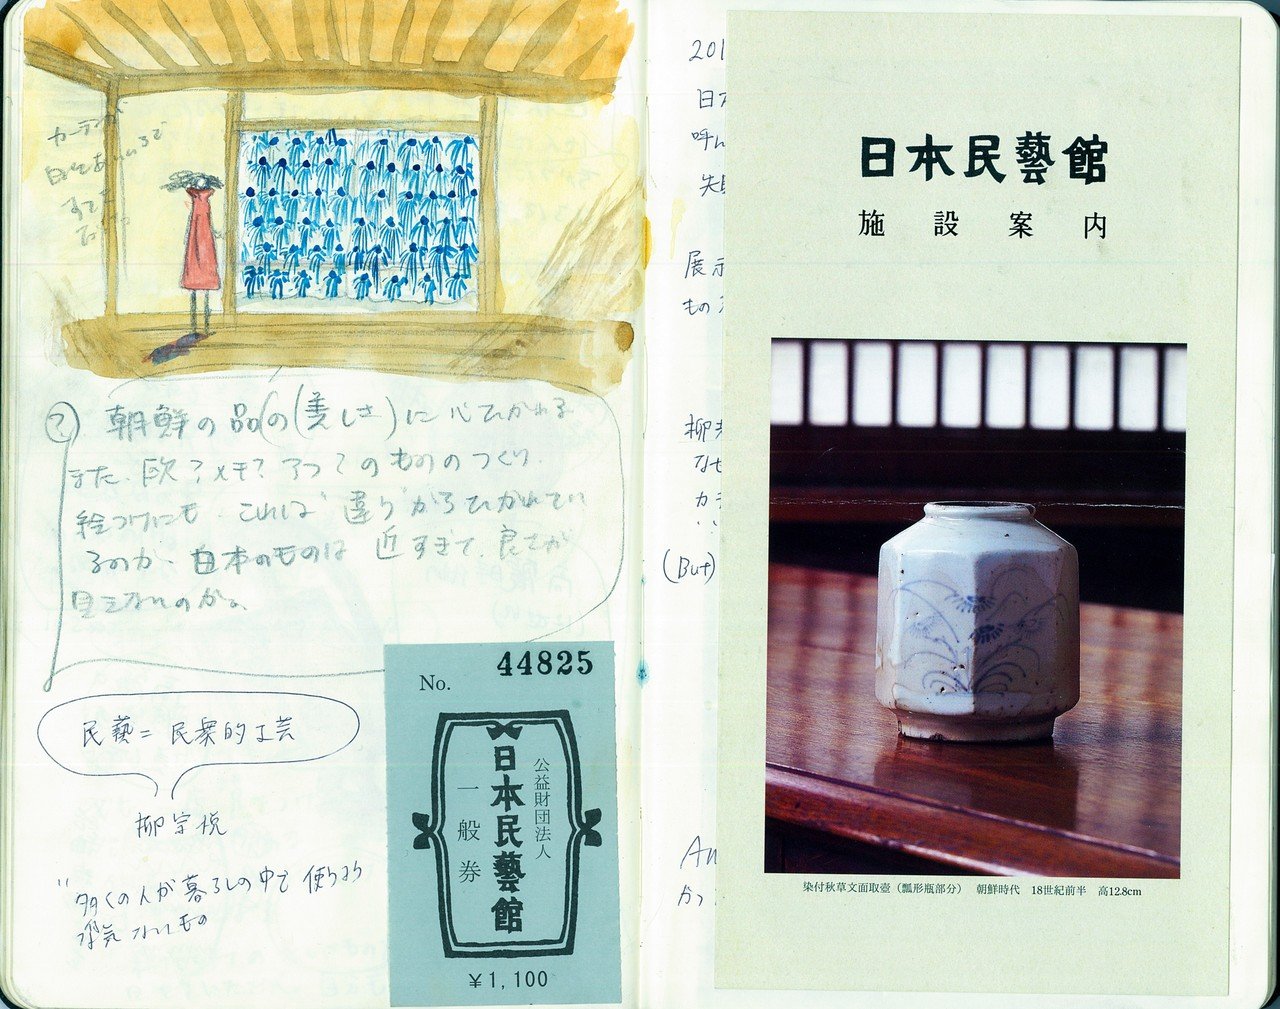 カーテンが
すてき
② 朝鮮の品(の(美しさ)に心ひかれる
また、欧?メキ?アフ?のもののつくり、
絵つけにも。これは"違り"からひかれてい
るのか、日本のものは 近すぎて、良さが
見えないのか。
民藝=民衆的工芸
柳宗悦
"多くの人が暮らしの中で使う
もの
No. 44825
公益財団法人
日本民藝館
一般券
¥1,100
201
日
呼ん
失
展示
もの
柳
なぜ
カ
(But)
An
かっ
日本民藝館
施設案内
染付秋草文面取壺(瓢形瓶部分) 朝鮮時代 18世紀前半 高12.8cm